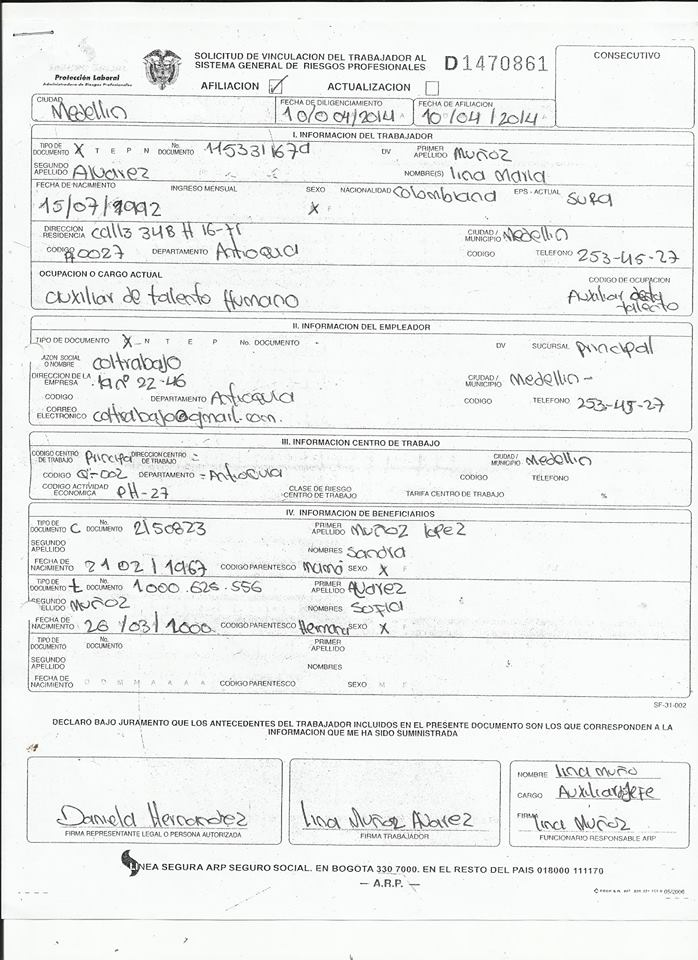 Protección Laboral
Administradora de Riesgos Profesionales
SOLICITUD DE VINCULACION DEL TRABAJADOR AL
SISTEMA GENERAL DE RIESGOS PROFESIONALES
D1470861
CONSECUTIVO
AFILIACION ACTUALIZACION
CIUDAD Medellin
FECHA DE DILIGENCIAMIENTO
FECHA DE AFILIACION 10/04/2014
I. INFORMACION DEL TRABAJADOR
TIPO DE DOCUMENTO X T E P N No. DOCUMENTO 1153311679 DV PRIMER APELLIDO MUÑOZ
SEGUNDO APELLIDO Alvarez NOMBRE(S) lina Maria
FECHA DE NACIMIENTO 15/07/1992 INGRESO MENSUAL SEXO X F NACIONALIDAD colombiana EPS - ACTUAL SURA
DIRECCION RESIDENCIA calls 34B # 16-71 CIUDAD / MUNICIPIO Medellin
CODIGO 0027 DEPARTAMENTO Antioquia CODIGO TELEFONO 253-45-27
OCUPACION O CARGO ACTUAL CODIGO DE OCUPACION
auxiliar de talento Humano Auxiliar talento
II. INFORMACION DEL EMPLEADOR
TIPO DE DOCUMENTO X N T E P No. DOCUMENTO - DV SUCURSAL principal
RAZON SOCIAL O NOMBRE coltrabajo
DIRECCION DE LA EMPRESA nº 22-46 CIUDAD / MUNICIPIO Medellin -
CODIGO DEPARTAMENTO Antioquia CODIGO TELEFONO 253-45-27
CORREO ELECTRONICO coltrabajo@gmail.com.
III. INFORMACION CENTRO DE TRABAJO
CODIGO CENTRO DE TRABAJO Principal DIRECCION CENTRO DE TRABAJO - CIUDAD / MUNICIPIO Medellin
CODIGO 002 DEPARTAMENTO - Antioquia CODIGO TELEFONO
CODIGO ACTIVIDAD ECONOMICA PH-27 CLASE DE RIESGO CENTRO DE TRABAJO TARIFA CENTRO DE TRABAJO %
IV. INFORMACION DE BENEFICIARIOS
TIPO DE DOCUMENTO C No. DOCUMENTO 2150823 PRIMER APELLIDO MUÑOZ lopez
SEGUNDO APELLIDO NOMBRES Sandra
FECHA DE NACIMIENTO 21 02/1967 CODIGO PARENTESCO mamá SEXO X F
TIPO DE DOCUMENTO t No. DOCUMENTO 1000.626.556 PRIMER APELLIDO Alvarez
SEGUNDO APELLIDO MUÑOZ NOMBRES Sofia
FECHA DE NACIMIENTO 26/03/2000 CODIGO PARENTESCO Hermana SEXO X
TIPO DE DOCUMENTO No. DOCUMENTO PRIMER APELLIDO
SEGUNDO APELLIDO NOMBRES
FECHA DE NACIMIENTO D D M M A A A A CODIGO PARENTESCO SEXO M F
SF-31-002
DECLARO BAJO JURAMENTO QUE LOS ANTECEDENTES DEL TRABAJADOR INCLUIDOS EN EL PRESENTE DOCUMENTO SON LOS QUE CORRESPONDEN A LA
INFORMACION QUE ME HA SIDO SUMINISTRADA
Daniela Hernandez
FIRMA REPRESENTANTE LEGAL O PERSONA AUTORIZADA
Lina Muñoz Alvarez
FIRMA TRABAJADOR
NOMBRE lina muño
CARGO Auxiliar Jefe
FIRMA lina Muñoz
FUNCIONARIO RESPONSABLE ARP
LINEA SEGURA ARP SEGURO SOCIAL. EN BOGOTA 330 7000. EN EL RESTO DEL PAIS 018000 111170
— A.R.P. —
05/2006